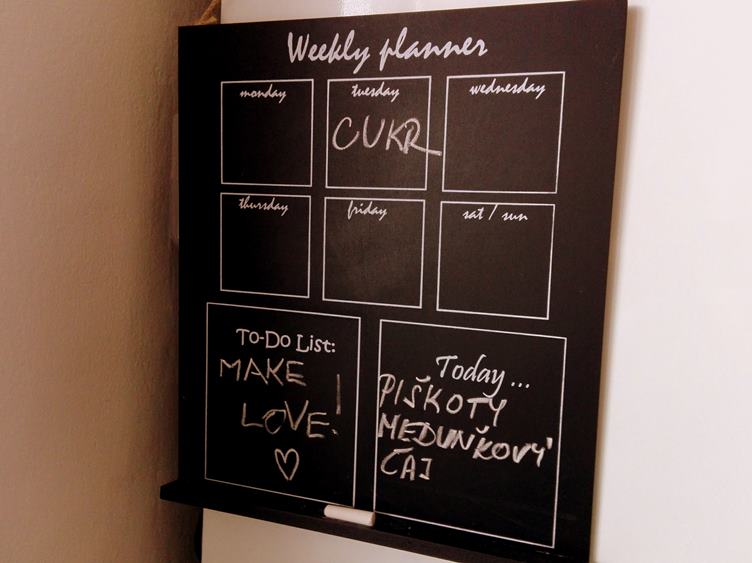 Weekly planner
monday
tuesday
wednesday
CUKR
thursday
friday
sat / sun
To-Do List:
MAKE
LOVE!
♡
Today...
PIŠKOTY
MEDUŇKOVÝ
ČAJ